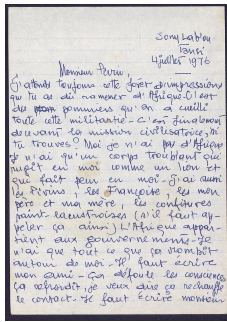 Sony Lab'ou
Tansi
4 juillet 1976
Monsieur Perin,
J'attends toujours cette forêt d'impressions
que tu as dû ramener d'Afrique. C'est
des pommiers qu'on a cueilli
toute cette militantie - C'en finalement
devant la mission civilisatrice,
tu trouves? Moi je n'ai pas d'Afrique
Je n'ai qu'un corps troublant qui
rugit en moi comme un lion et
qui fait peur en moi - j'ai aussi
les Pivins, les Françoise, les mon
père et ma mère, les confitures
(s'il faut ap-
peler ça ainsi) L'Afrique appar-
tient aux gouvernements - Je
n'ai que tout ce que ça vombit
autour de moi - Il faut écrire
mon ami - Ça défoule les consciences
ça refroidit, je veux dire ça réchauffe
le contact - Il faut écrire monsieur